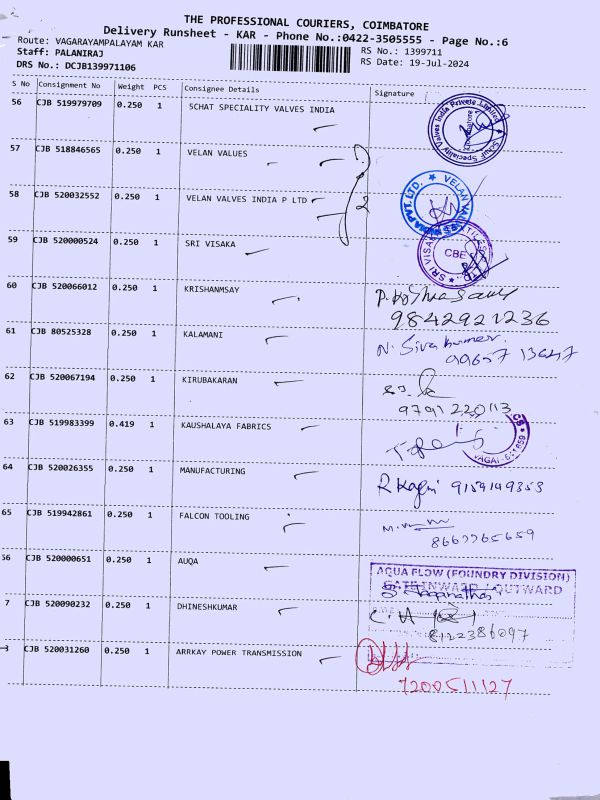 THE PROFESSIONAL COURIERS, COIMBATORE
Delivery Runsheet - KAR - Phone No.:0422-3505555 - Page No.:6
Route: VAGARAYAMPALAYAM KAR RS No.: 1399711
Staff: PALANIRAJ RS Date: 19-Jul-2024
DRS No.: DCJB139971106
S No Consignment No Weight PCS Consignee Details Signature
56 CJB 519979709 0.250 1 5CHAT SPECIALITY VALVES INDIA
57 CJB 518846565 0.250 1 VELAN VALUES
58 CJB 520032552 0.250 1 VELAN VALVES INDIA P LTD 2
59 CJB 520000524 0.250 1 SRI VISAKA CBE
60 CJB 520066012 0.250 1 KRISHANMSAY
9842921236
61 CJB 80525328 0.250 1 KALAMANI N. Sivakumar.
99657 13647
62 CJB 520067194 0.250 1 KIRUBAKARAN
9791220113
63 CJB 519983399 0.419 1 KAUSHALAYA FABRICS
64 CJB 520026355 0.250 1 MANUFACTURING 9159149353
65 CJB 519942861 0.250 1 FALCON TOOLING
8667765659
56 CJB 520000651 0.250 1 AUQA
AQUA FLOW (FOUNDRY DIVISION)
GATE INWARD / OUTWARD
7 CJB 520090232 0.250 1 DHINESHKUMAR
8122386097
3 CJB 520031260 0.250 1 ARRKAY POWER TRANSMISSION
7200511127